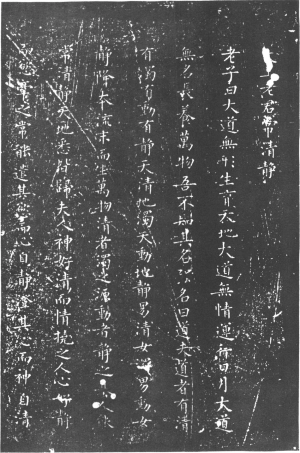 老君常清靜
老子曰大道無形生育天地大道無情運行日月大道
無名長養萬物吾不知其名強名曰道夫道者有清
有濁有動有靜天清地濁天動地靜男清女濁男動女
靜降本流末而生萬物清者濁之源動者靜之人
常清靜天地悉皆歸夫人神好清而情擾之人心好靜
而慾牽之常能遣其慾而心自靜澄其心而神自清